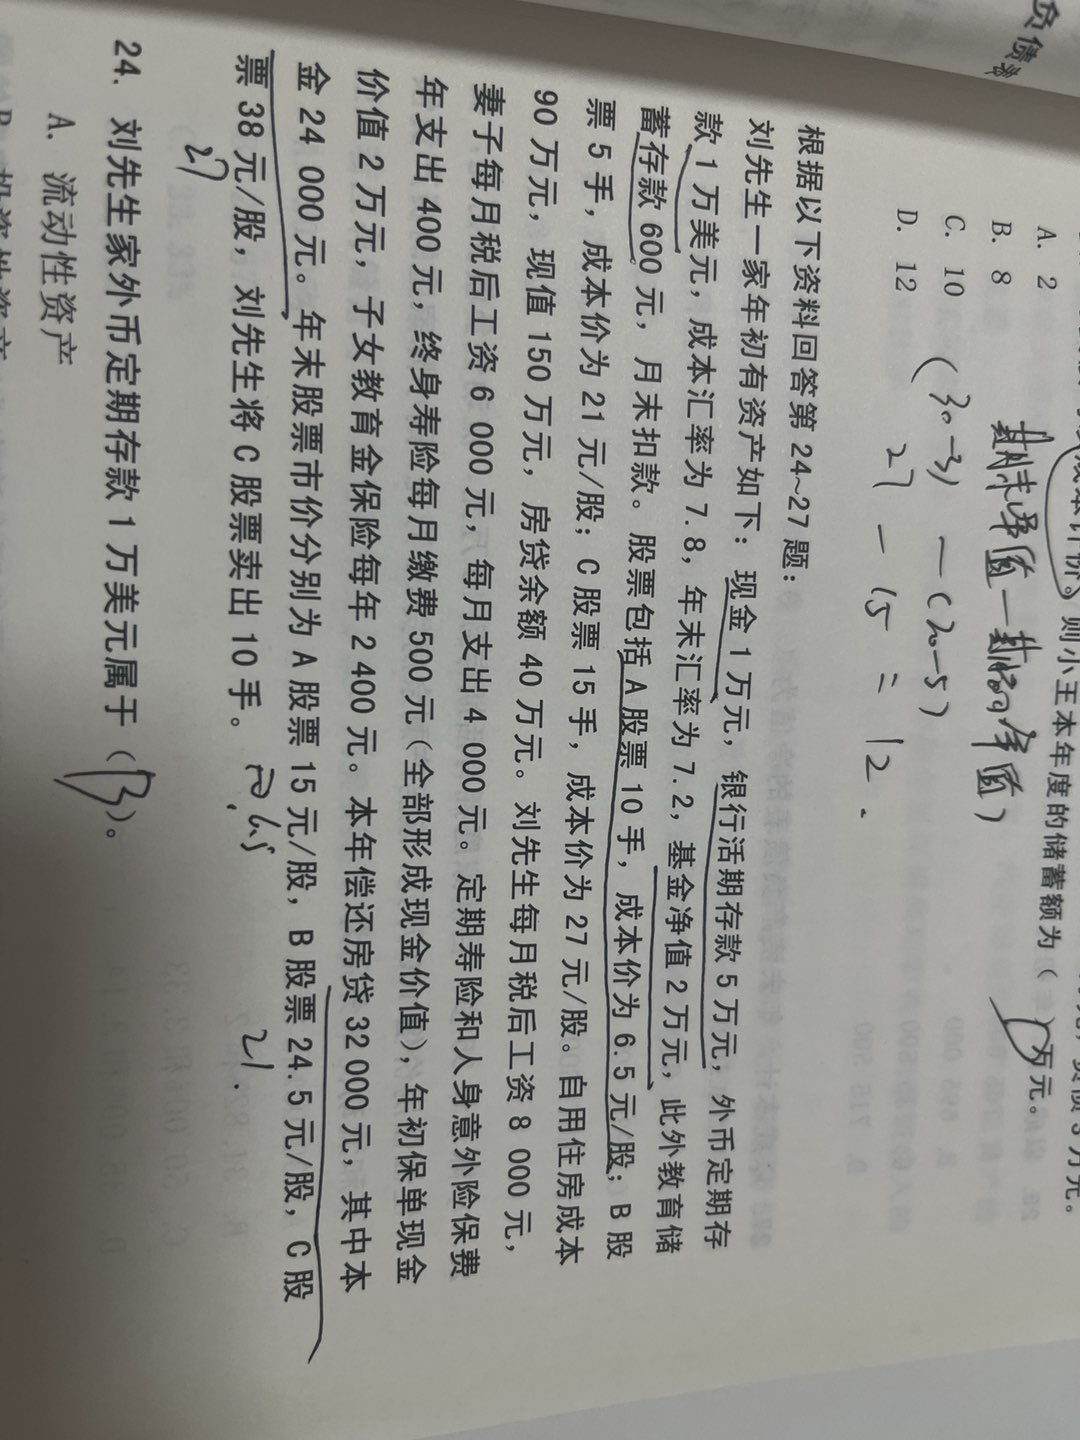 负债表
成本计价。则小王本年度的储蓄额为（ ）万元。
A. 2
B. 8
C. 10
D. 12
期末净值—期初净值)
(30-3) — (20-5)
27 - 15 = 12.
根据以下资料回答第 24~27 题：
刘先生一家年初有资产如下：现金 1 万元，银行活期存款 5 万元，外币定期存
款 1 万美元，成本汇率为 7.8，年末汇率为 7.2，基金净值 2 万元，此外教育储
蓄存款 600 元，月末扣款。股票包括 A 股票 10 手，成本价为 6.5 元/股；B 股
票 5 手，成本价为 21 元/股；C 股票 15 手，成本价为 27 元/股。自用住房成本
90 万元，现值 150 万元，房贷余额 40 万元。刘先生每月税后工资 8 000 元，
妻子每月税后工资 6 000 元，每月支出 4 000 元。定期寿险和人身意外险保费
年支出 400 元，终身寿险每月缴费 500 元（全部形成现金价值），年初保单现金
价值 2 万元，子女教育金保险每年 2 400 元。本年偿还房贷 32 000 元，其中本
金 24 000 元。年末股票市价分别为 A 股票 15 元/股，B 股票 24.5 元/股，C 股
票 38 元/股，刘先生将 C 股票卖出 10 手。
27
21.
24. 刘先生家外币定期存款 1 万美元属于（B）。
A. 流动性资产
B. 投资性资产